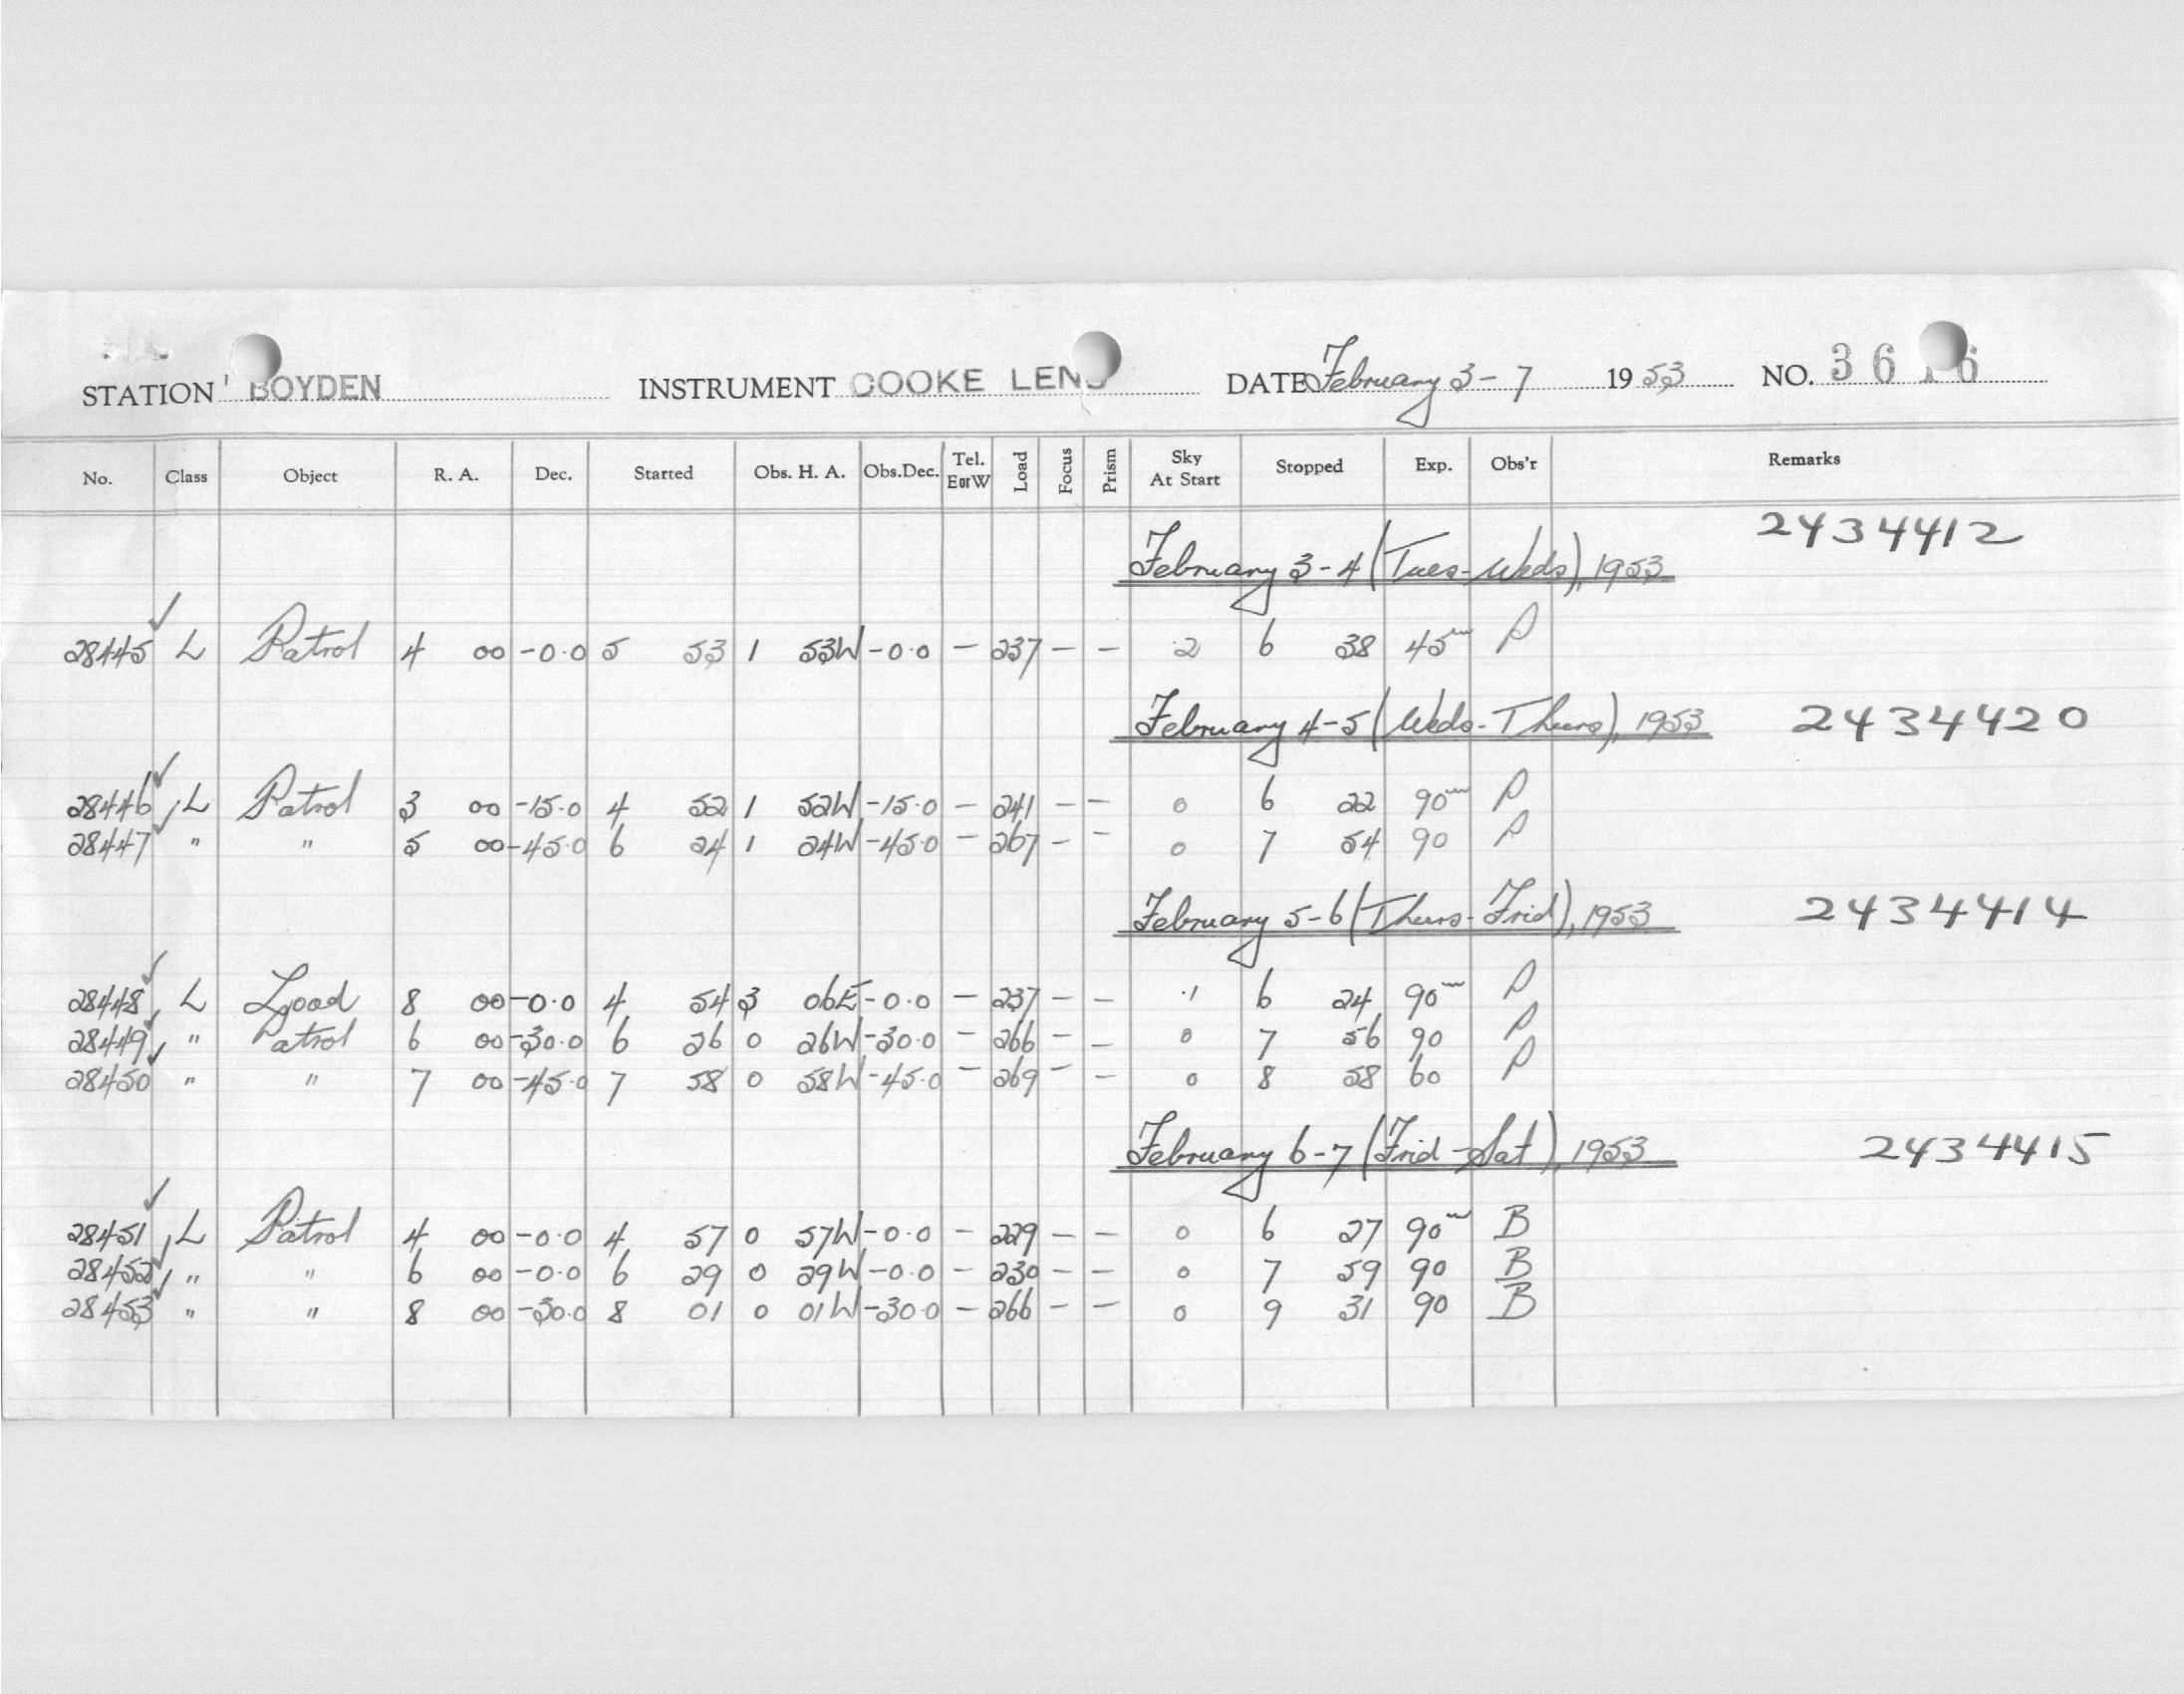 STATION BOYDEN INSTRUMENT COOKE LENS DATE February 3-7 1953 NO. 36 6
No. Class Object R. A. Dec. Started Obs. H. A. Obs.Dec. Tel. EorW Load Focus Prism Sky At Start Stopped Exp. Obs'r Remarks
February 3-4 (Tues-Weds), 1953 2434412
28445 L Patrol 4 00 -0.0 5 53 1 53W -0.0 - 237 - - .2 6 38 45m P
February 4-5 (Weds-Thurs), 1953 2434420
28446 L Patrol 3 00 -15.0 4 52 1 52W -15.0 - 241 - - 0 6 22 90m P
28447 " " 5 00 -45.0 6 24 1 24W -45.0 - 267 - - 0 7 54 90 P
February 5-6 (Thurs-Frid), 1953 2434414
28448 L 8 00 -0.0 4 54 3 06E -0.0 - 237 - - .1 6 24 90m P
28449 " Patrol 6 00 -30.0 6 26 0 26W -30.0 - 266 - - 0 7 56 90 P
28450 " " 7 00 -45.0 7 58 0 58W -45.0 - 269 - - 0 8 58 60 P
February 6-7 (Frid-Sat), 1953 2434415
28451 L Patrol 4 00 -0.0 4 57 0 57W -0.0 - 229 - - 0 6 27 90m B
28452 " " 6 00 -0.0 6 29 0 29W -0.0 - 230 - - 0 7 59 90 B
28453 " " 8 00 -30.0 8 01 0 01W -30.0 - 266 - - 0 9 31 90 B